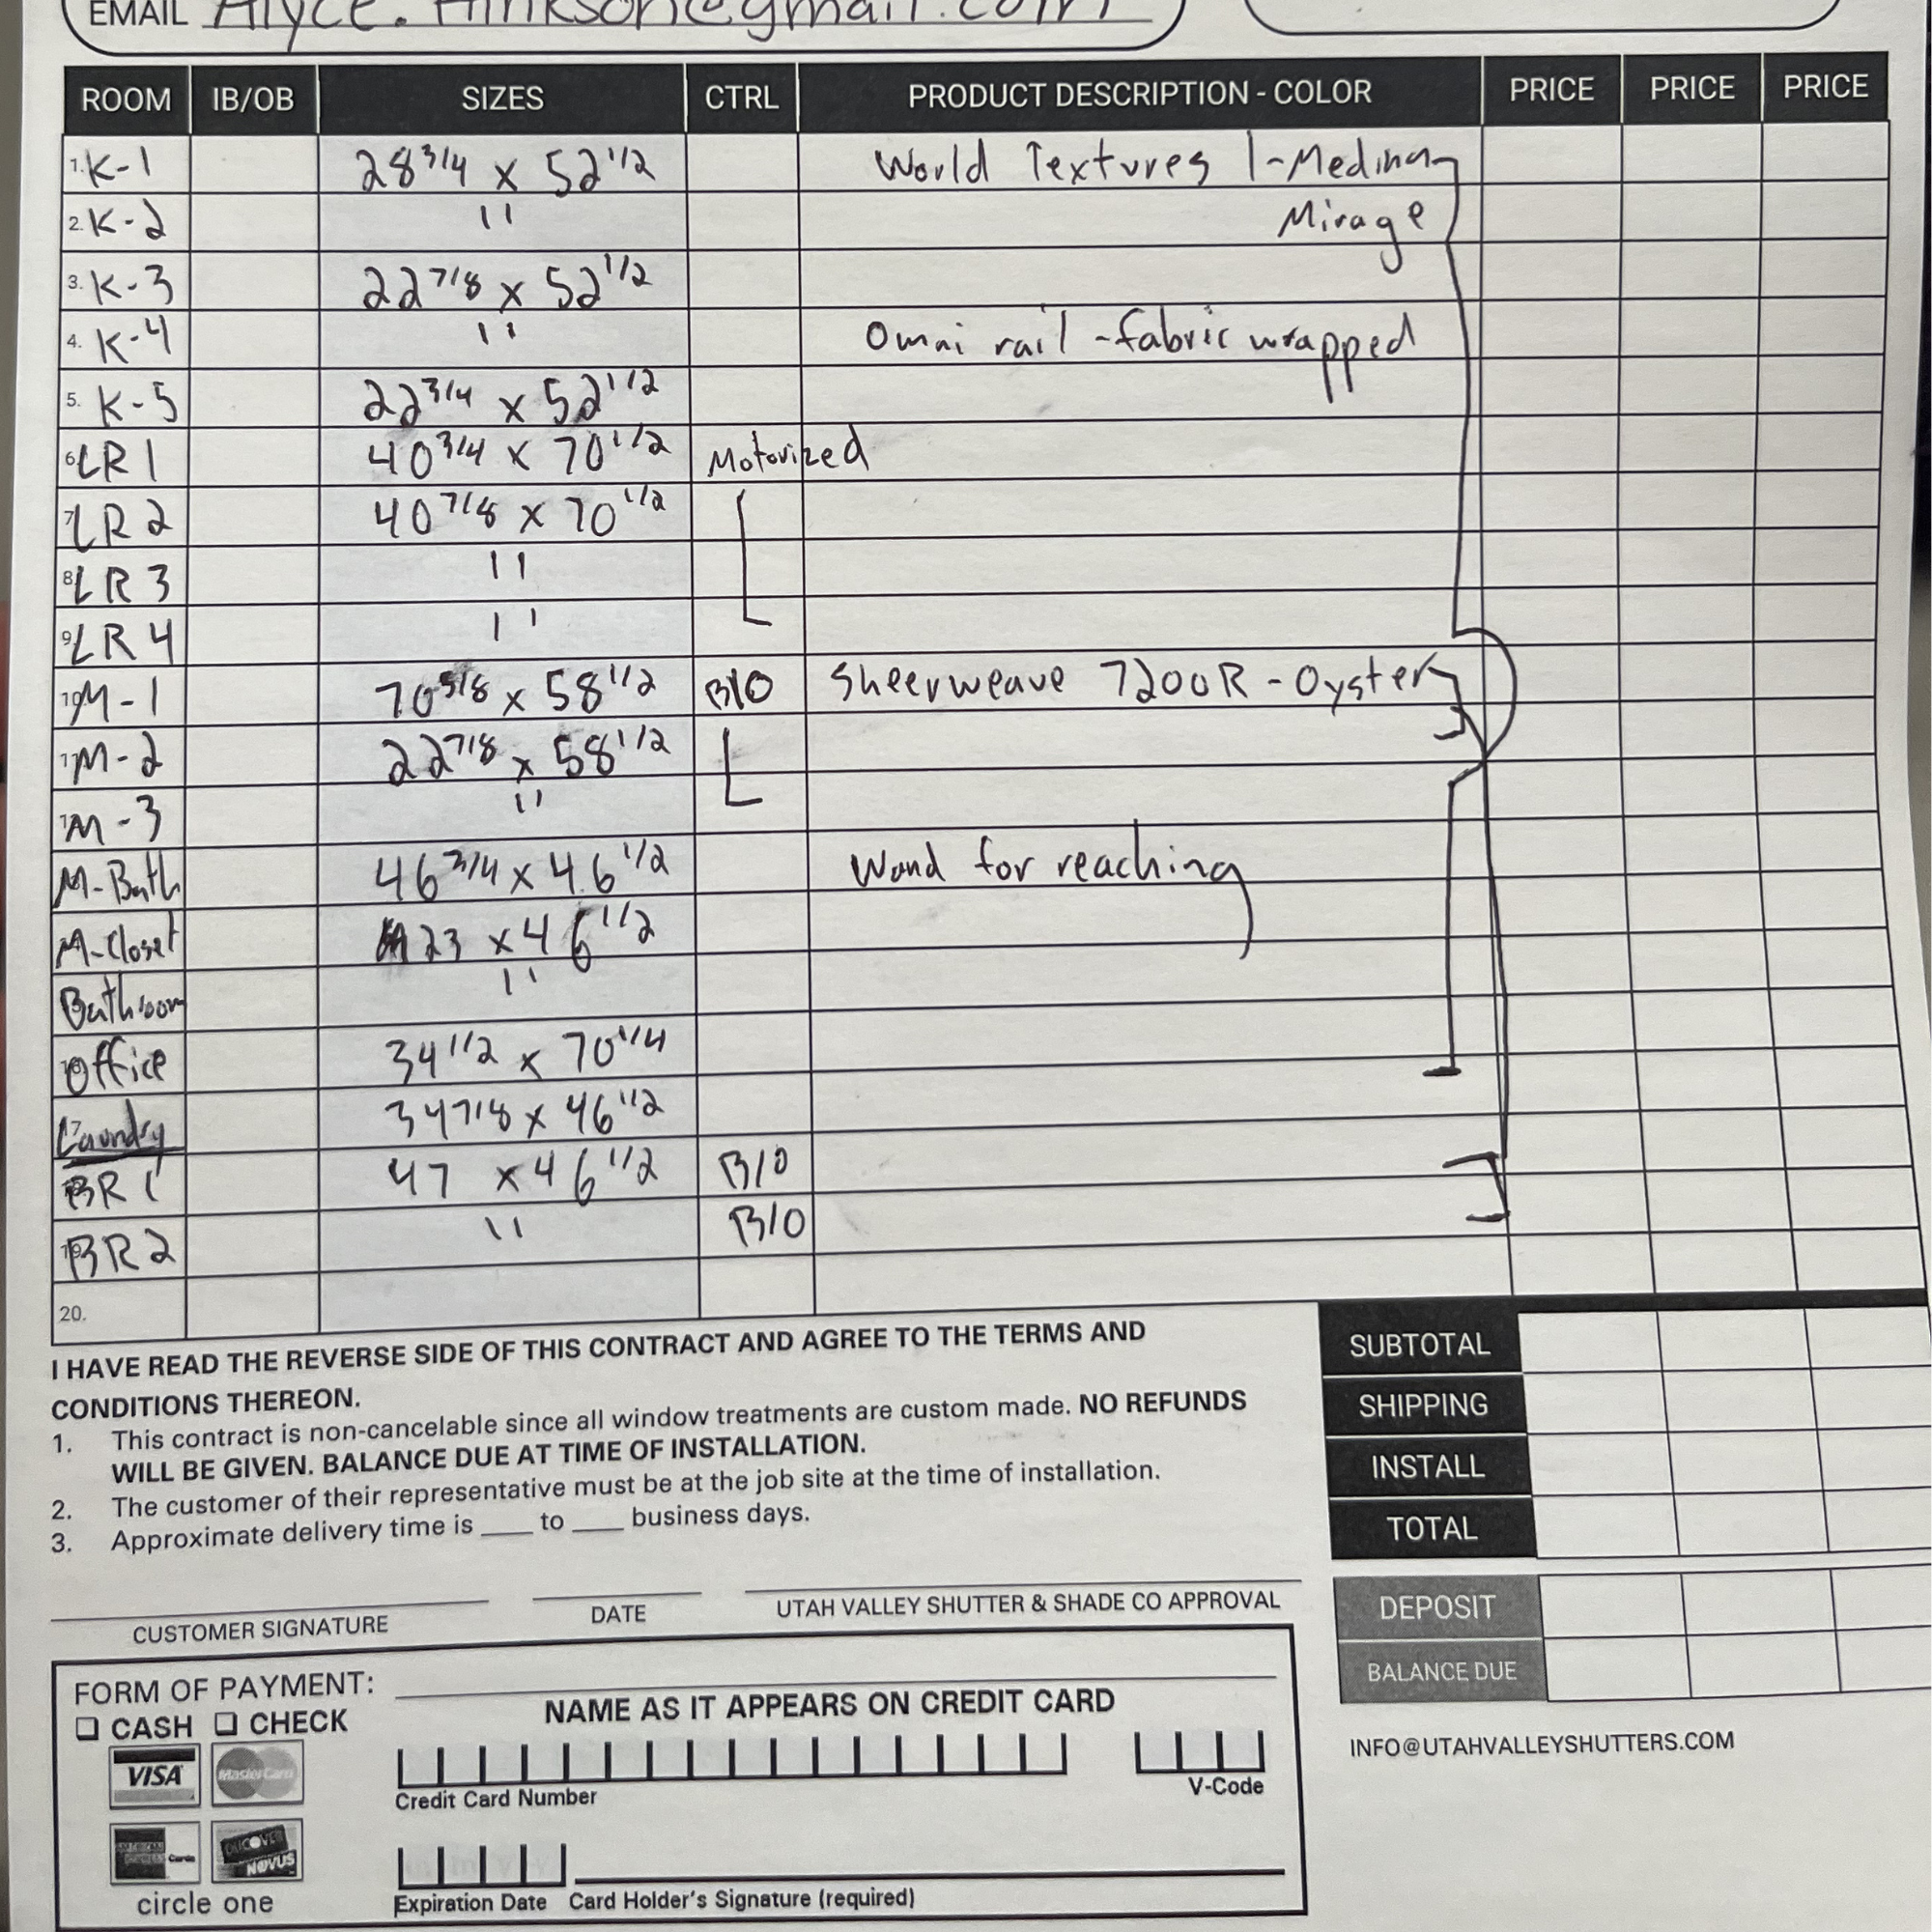 EMAIL Alyce.Hinkson@gmail.com
ROOM IB/OB SIZES CTRL PRODUCT DESCRIPTION - COLOR PRICE PRICE PRICE
1. K-1 28 3/4 x 52 1/2 World Textures 1-Medina
2. K-2 " Mirage
3. K-3 22 7/8 x 52 1/2
4. K-4 " Omni rail - fabric wrapped
5. K-5 22 3/4 x 52 1/2
6 LR 1 40 3/4 x 70 1/2 Motorized
7 LR 2 40 7/8 x 70 1/2
8 LR 3 "
9 LR 4 "
10 M-1 70 5/8 x 58 1/2 B/O Sheerweave 7200R - Oyster
M-2 22 7/8 x 58 1/2
M-3 "
M-Bath 46 3/4 x 46 1/2 Wand for reaching
M-Closet 23 x 46 1/2
Bathroom "
Office 34 1/2 x 70 1/4
17 Laundry 34 7/8 x 46 1/2
BR 1 47 x 46 1/2 B/O
BR 2 " B/O
20.
I HAVE READ THE REVERSE SIDE OF THIS CONTRACT AND AGREE TO THE TERMS AND
CONDITIONS THEREON.
1. This contract is non-cancelable since all window treatments are custom made. NO REFUNDS
WILL BE GIVEN. BALANCE DUE AT TIME OF INSTALLATION.
2. The customer of their representative must be at the job site at the time of installation.
3. Approximate delivery time is ___ to ___ business days.
SUBTOTAL
SHIPPING
INSTALL
TOTAL
DEPOSIT
BALANCE DUE
CUSTOMER SIGNATURE DATE UTAH VALLEY SHUTTER & SHADE CO APPROVAL
FORM OF PAYMENT:
CASH CHECK
NAME AS IT APPEARS ON CREDIT CARD
VISA MasterCard
Credit Card Number V-Code
Cards DISCOVER NOVUS
circle one
Expiration Date Card Holder's Signature (required)
INFO@UTAHVALLEYSHUTTERS.COM